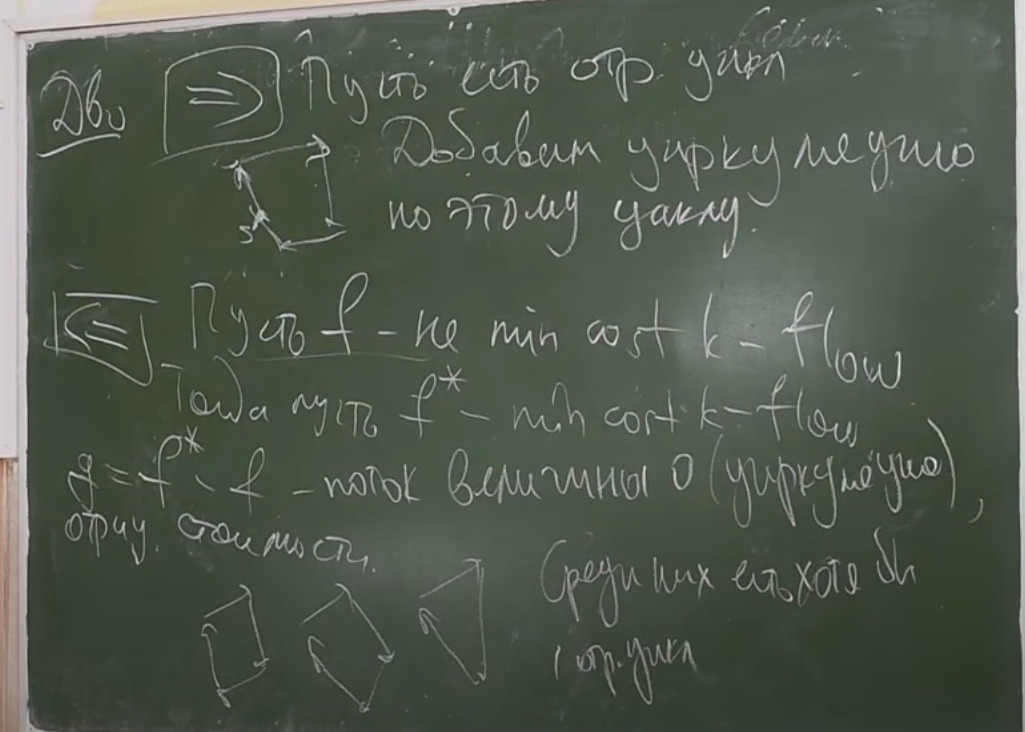 Дво ⇒ Пусть есть отр. цикл
Добавим циркуляцию
по этому циклу.
⇐ Пусть f - не min cost k - flow
Тогда пусть f* - min cost k - flow
g = f* - f - поток величины 0 (циркуляцию),
отриц. стоимости.
Среди них есть хотя бы
1 отр. цикл